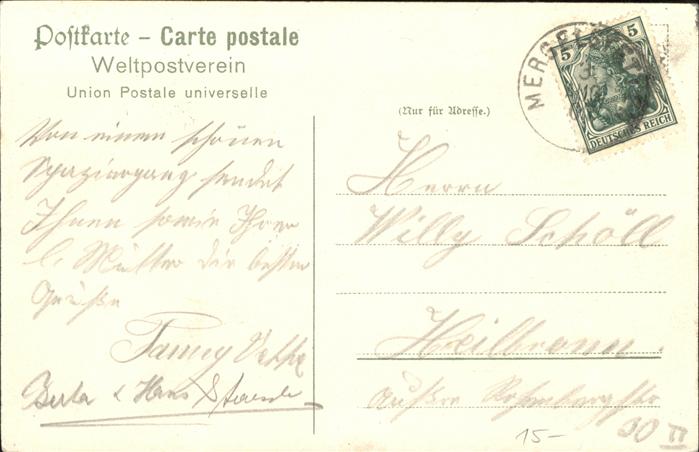 Postkarte – Carte postale
Weltpostverein
Union Postale universelle
(Nur für Adresse.)
5 5
DEUTSCHES REICH
Von einem schönen
Spaziergang sendet
Ihnen sowie Ihrer
l. Mutter die besten
Grüße
Fanny
Berta & Hans
Herrn
Willy Schöll
Heilbronn.
Äußere Rosenbergstr
30 II
15-